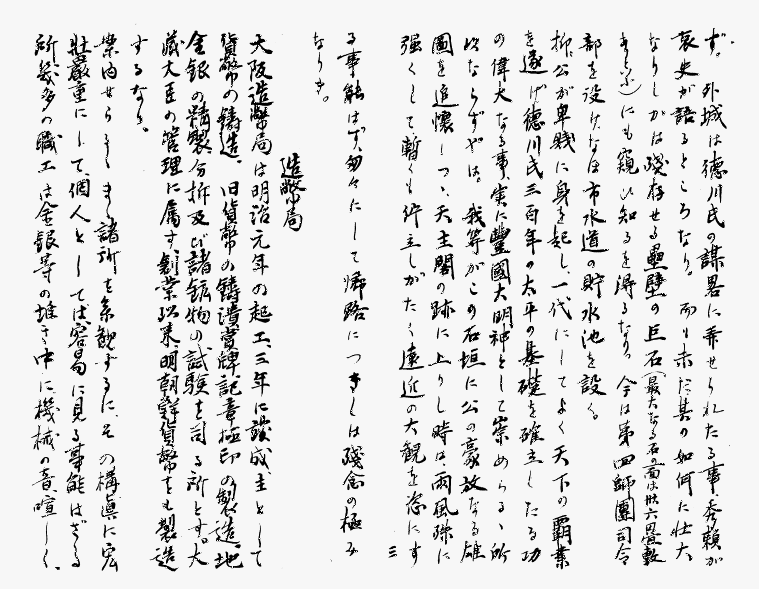 ず。外城は徳川氏の謀畧に乗せられたる事、秀頼が
哀史が語るところなり。而り未だ其の如何に壮大
なりしかは残存せる壘壁の巨石(最大なる石の面は卅六畳敷
きと云ふ)にも窺ひ知るを得るなり。今は第四師團司令
部を設けなほ市水道の貯水池を設く。
抑、公が卑賤に身を起し、一代にしてよく天下の覇業
を遂げ徳川氏三百年の太平の基礎を確立したる功
の偉大なる事、実に豐國大明神として崇めらるゝ所
以ならずやは。我等がこの石垣に公の豪放なる雄
圖を追懐しつゝ天主閣の跡に上りし時は雨風殊に
強くして暫くも佇立しがたく遠近の大観を恣にす
三
る事能はず、匆々にして帰路につきしは残念の極み
なりき。
造幣局
大阪造幣局は明治元年の起工、三年に竣成、主として
貨幣の鋳造、旧貨幣の鋳潰賞牌、記章極印の製造、地
金銀の精製、分析及び諸鉱物の試験を司る所とす。大
藏大臣の管理に属す。創業以来、明朝鮮貨幣をも製造
するなり。
業内せられまゝ諸所を参観するに、その構眞に宏
壯嚴重にして、個人としては容易に見る事能はざる
所、幾多の職工は金銀等の堆き中に機械の音喧しく、